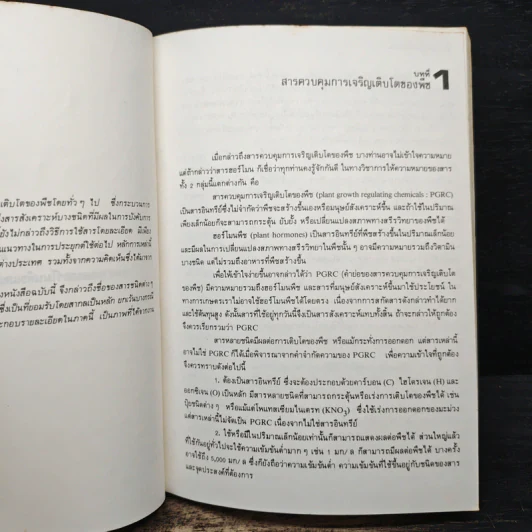 ติบโตของพืชโดยทั่ว ๆ ไป ซึ่งกระบวนการ
สารสังเคราะห์บางชนิดที่มีผลในการบังคับการ
ยังไม่กล่าวถึงวิธีการใช้สารโดยละเอียด มีเพียง
แนวทางในการประยุกต์ใช้ต่อไป หลักการเหล่านี้
ต่างประเทศ รวมทั้งจากความคิดเห็นซึ่งได้มาจาก
หนังสือฉบับนี้ จึงกล่าวถึงชื่อของสารชนิดต่าง ๆ
ซึ่งเป็นที่ยอมรับโดยสากลเป็นหลัก ยกเว้นบางกรณี
ประกอบรายละเอียดในภาคนี้ เป็นภาพที่ได้จากงาน
บทที่ 1
สารควบคุมการเจริญเติบโตของพืช
เมื่อกล่าวถึงสารควบคุมการเจริญเติบโตของพืช บางท่านอาจไม่เข้าใจความหมาย
แต่ถ้ากล่าวว่าสารฮอร์โมน ก็เชื่อว่าทุกท่านคงรู้จักกันดี ในทางวิชาการให้ความหมายของสาร
ทั้ง 2 กลุ่มนี้แตกต่างกัน คือ
สารควบคุมการเจริญเติบโตของพืช (plant growth regulating chemicals : PGRC)
เป็นสารอินทรีย์ซึ่งไม่จำกัดว่าพืชจะสร้างขึ้นเองหรือมนุษย์สังเคราะห์ขึ้น และถ้าใช้ในปริมาณ
เพียงเล็กน้อยก็จะสามารถกระตุ้น ยับยั้ง หรือเปลี่ยนแปลงสภาพทางสรีรวิทยาของพืชได้
ฮอร์โมนพืช (plant hormones) เป็นสารอินทรีย์ที่พืชสร้างขึ้นในปริมาณเล็กน้อย
และมีผลในการเปลี่ยนแปลงสภาพทางสรีรวิทยาในพืชนั้น ๆ อาจมีความหมายรวมถึงวิตามิน
บางชนิด แต่ไม่รวมถึงอาหารที่พืชสร้างขึ้น
เพื่อให้เข้าใจง่ายขึ้นอาจกล่าวได้ว่า PGRC (คำย่อของสารควบคุมการเจริญเติบโต
ของพืช) มีความหมายรวมถึงฮอร์โมนพืช และสารที่มนุษย์สังเคราะห์ขึ้นมาใช้ประโยชน์ ใน
ทางการเกษตรเราไม่อาจใช้ฮอร์โมนพืชได้โดยตรง เนื่องจากการสกัดสารดังกล่าวทำได้ยาก
และใช้ต้นทุนสูง ดังนั้นสารที่ใช้อยู่ทุกวันนี้จึงเป็นสารสังเคราะห์แทบทั้งสิ้น ถ้าจะกล่าวให้ถูกต้อง
จึงควรเรียกรวมว่า PGRC
สารหลายชนิดมีผลต่อการเติบโตของพืช หรือแม้กระทั่งการออกดอก แต่สารเหล่านี้
อาจไม่ใช่ PGRC ก็ได้เมื่อพิจารณาจากคำจำกัดความของ PGRC เพื่อความเข้าใจที่ถูกต้อง
จึงควรทราบดังต่อไปนี้
1. ต้องเป็นสารอินทรีย์ ซึ่งจะต้องประกอบด้วยคาร์บอน (C) ไฮโดรเจน (H) และ
ออกซิเจน (O) เป็นหลัก มีสารหลายชนิดที่สามารถกระตุ้นหรือเร่งการเติบโตของพืชได้ เช่น
ปุ๋ยชนิดต่าง ๆ หรือแม้แต่โพแทสเซียมไนเตรท (KNO₃) ซึ่งใช้เร่งการออกดอกของมะม่วง
แต่สารเหล่านี้ไม่จัดเป็น PGRC เนื่องจากไม่ใช่สารอินทรีย์
2. ใช้หรือมีในปริมาณเล็กน้อยเท่านั้นก็สามารถแสดงผลต่อพืชได้ ส่วนใหญ่แล้ว
ที่ใช้กันอยู่ทั่วไปจะใช้ความเข้มข้นต่ำมาก ๆ เช่น 1 มก/ล ก็สามารถมีผลต่อพืชได้ บางครั้ง
อาจใช้ถึง 5,000 มก/ล ซึ่งก็ยังถือว่าความเข้มข้นต่ำ ความเข้มข้นที่ใช้ขึ้นอยู่กับชนิดของสาร
และจุดประสงค์ที่ต้องการ